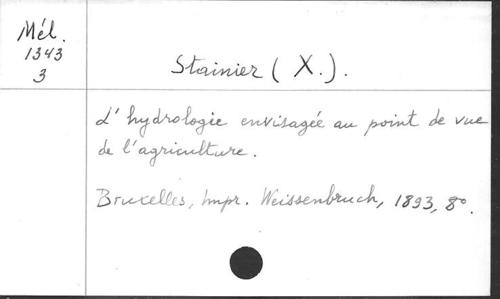 Mél.
1343
3
Stainier (X.).
L'hydrologie envisagée au point de vue
de l'agriculture.
Bruxelles, Impr. Weissenbruch, 1893, 8º.